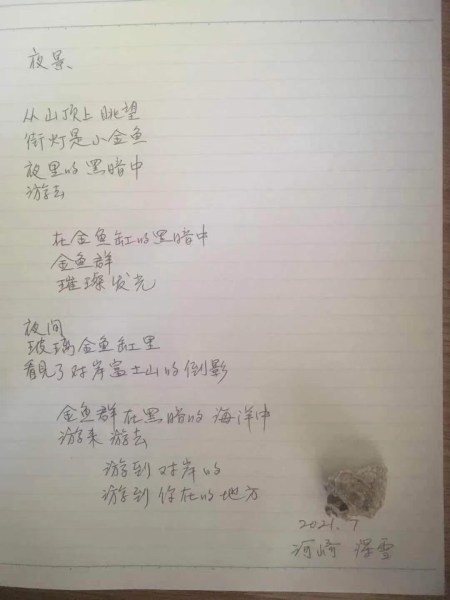 夜景
从山顶上眺望
街灯是小金鱼
夜里的黑暗中
游去
在金鱼缸的黑暗中
金鱼群
璀璨发光
夜间
玻璃金鱼缸里
看見了对岸富士山的倒影
金鱼群在黑暗的海洋中
游来游去
游到对岸的
游到你在的地方
2021.7
河崎 深雪